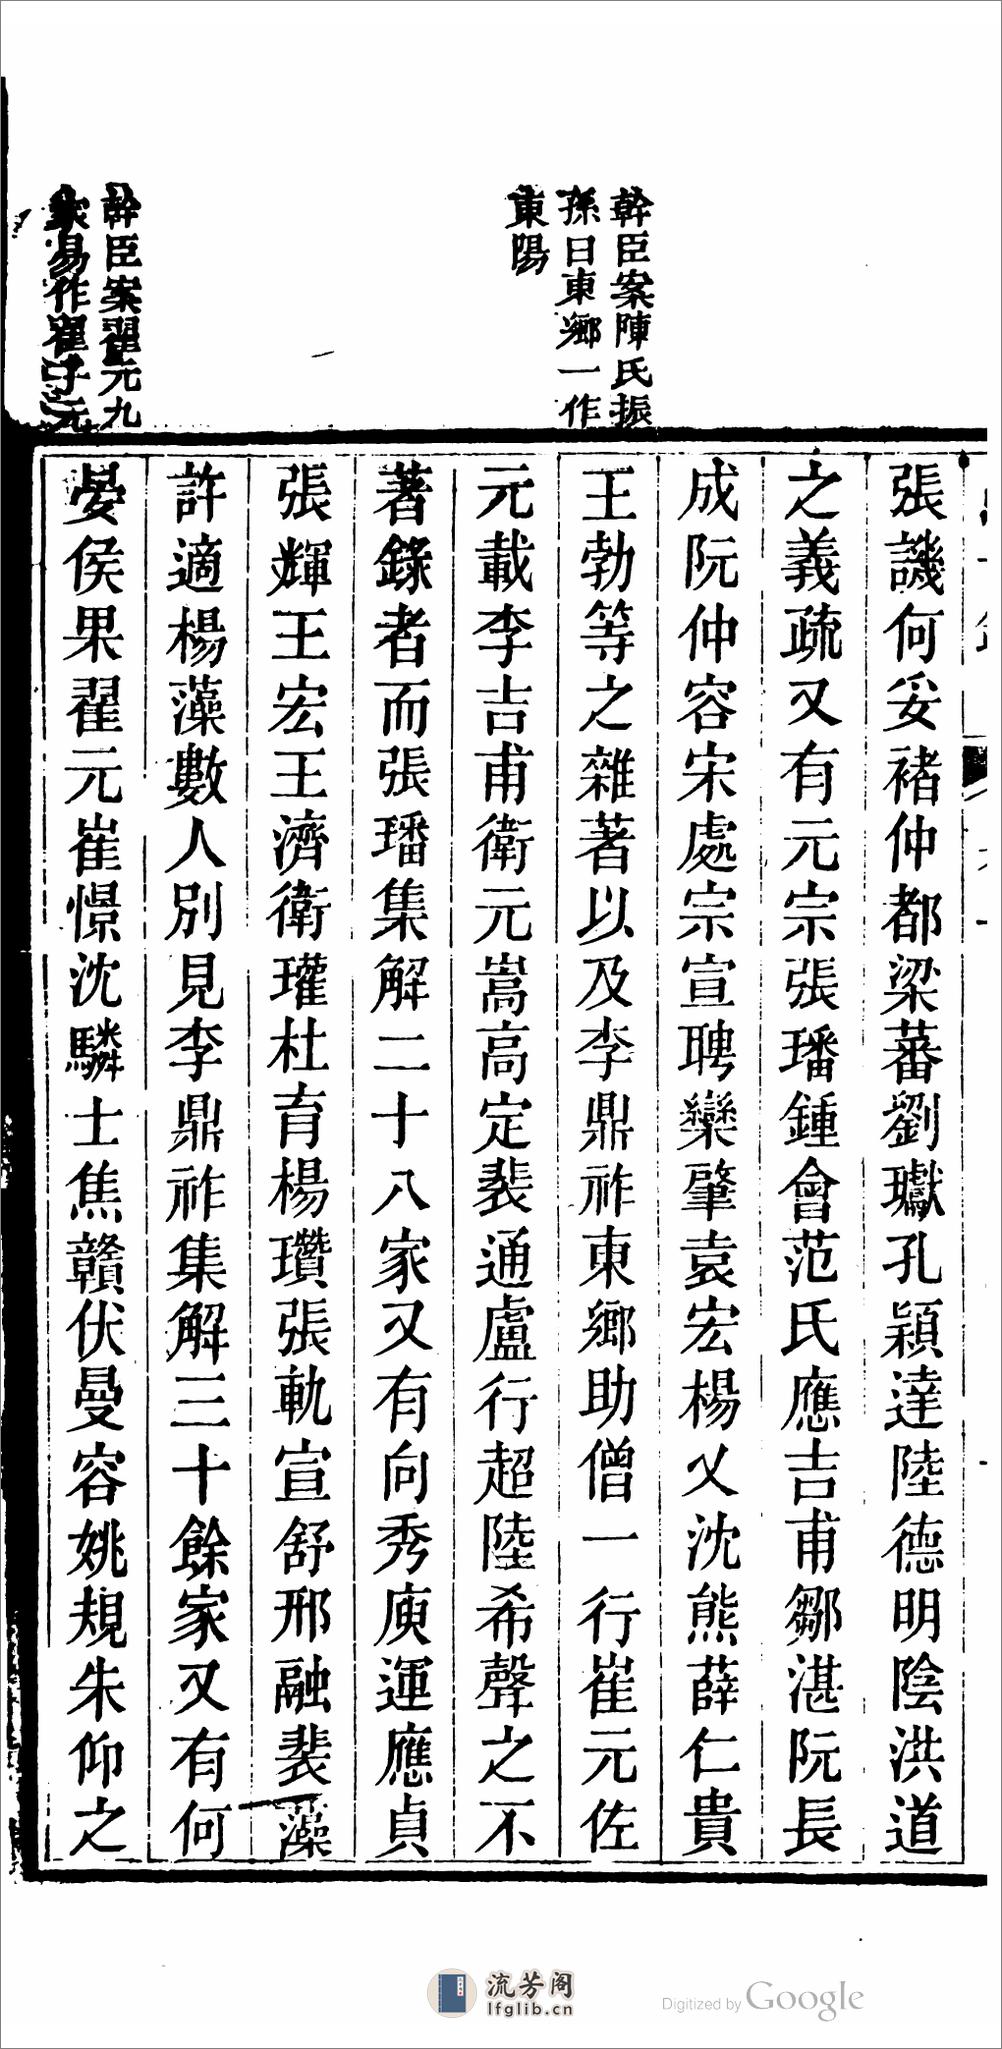 幹臣案陳氏振
孫曰東鄉一作
東陽
幹臣案翟元九
家易作翟子元
張譏何妥褚仲都梁蕃劉瓛孔穎達陸德明陰洪道
之義疏又有元宗張璠鍾會范氏應吉甫鄒湛阮長
成阮仲容宋處宗宣聘欒肇袁宏楊乂沈熊薛仁貴
王勃等之雜著以及李鼎祚東鄉助僧一行崔元佐
元載李吉甫衛元嵩高定裴通盧行超陸希聲之不
著錄者而張璠集解二十八家又有向秀庾運應貞
張輝王宏王濟衛瓘杜育楊瓚張軌宣舒邢融裴藻
許適楊藻數人別見李鼎祚集解三十餘家又有何
晏侯果翟元崔憬沈驎士焦贛伏曼容姚規朱仰之
流芳阁
lfglib.cn
Digitized by Google